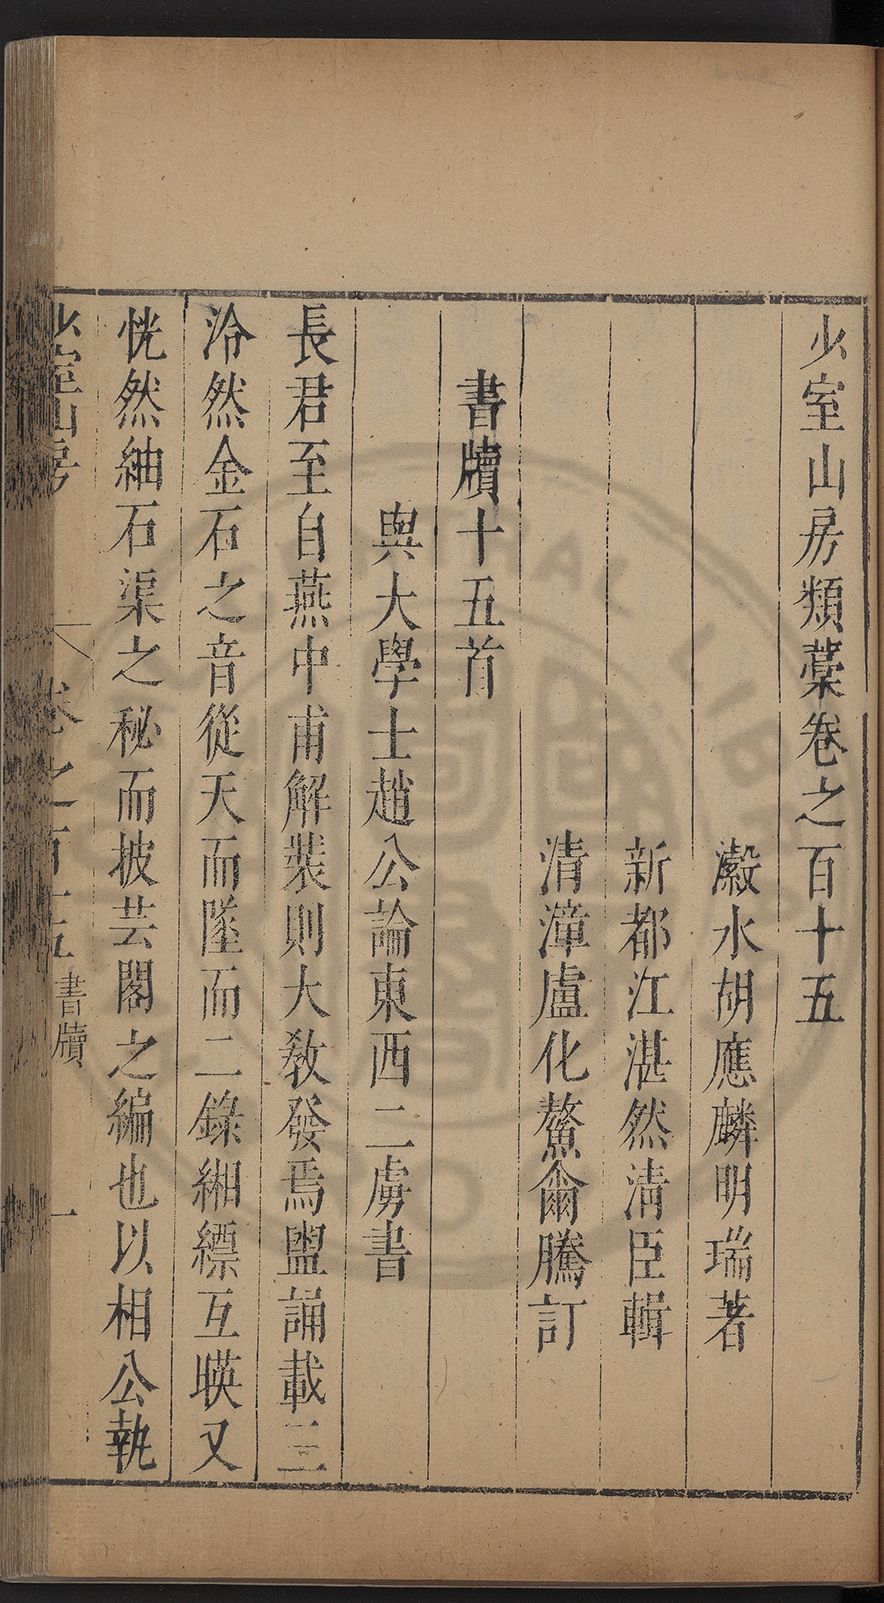 少室山房類藁卷之百十五
瀫水胡應麟明瑞著
新都江湛然清臣輯
清漳盧化鰲爾騰訂
書牘十五首
與大學士趙公論東西二虜書
長君至自燕中甫解裝則大教發焉盥誦載三
泠然金石之音從天而墜而二錄緗縹互暎又
恍然紬石渠之秘而披芸閣之編也以相公執
少室山房
卷之百十五
書牘
一